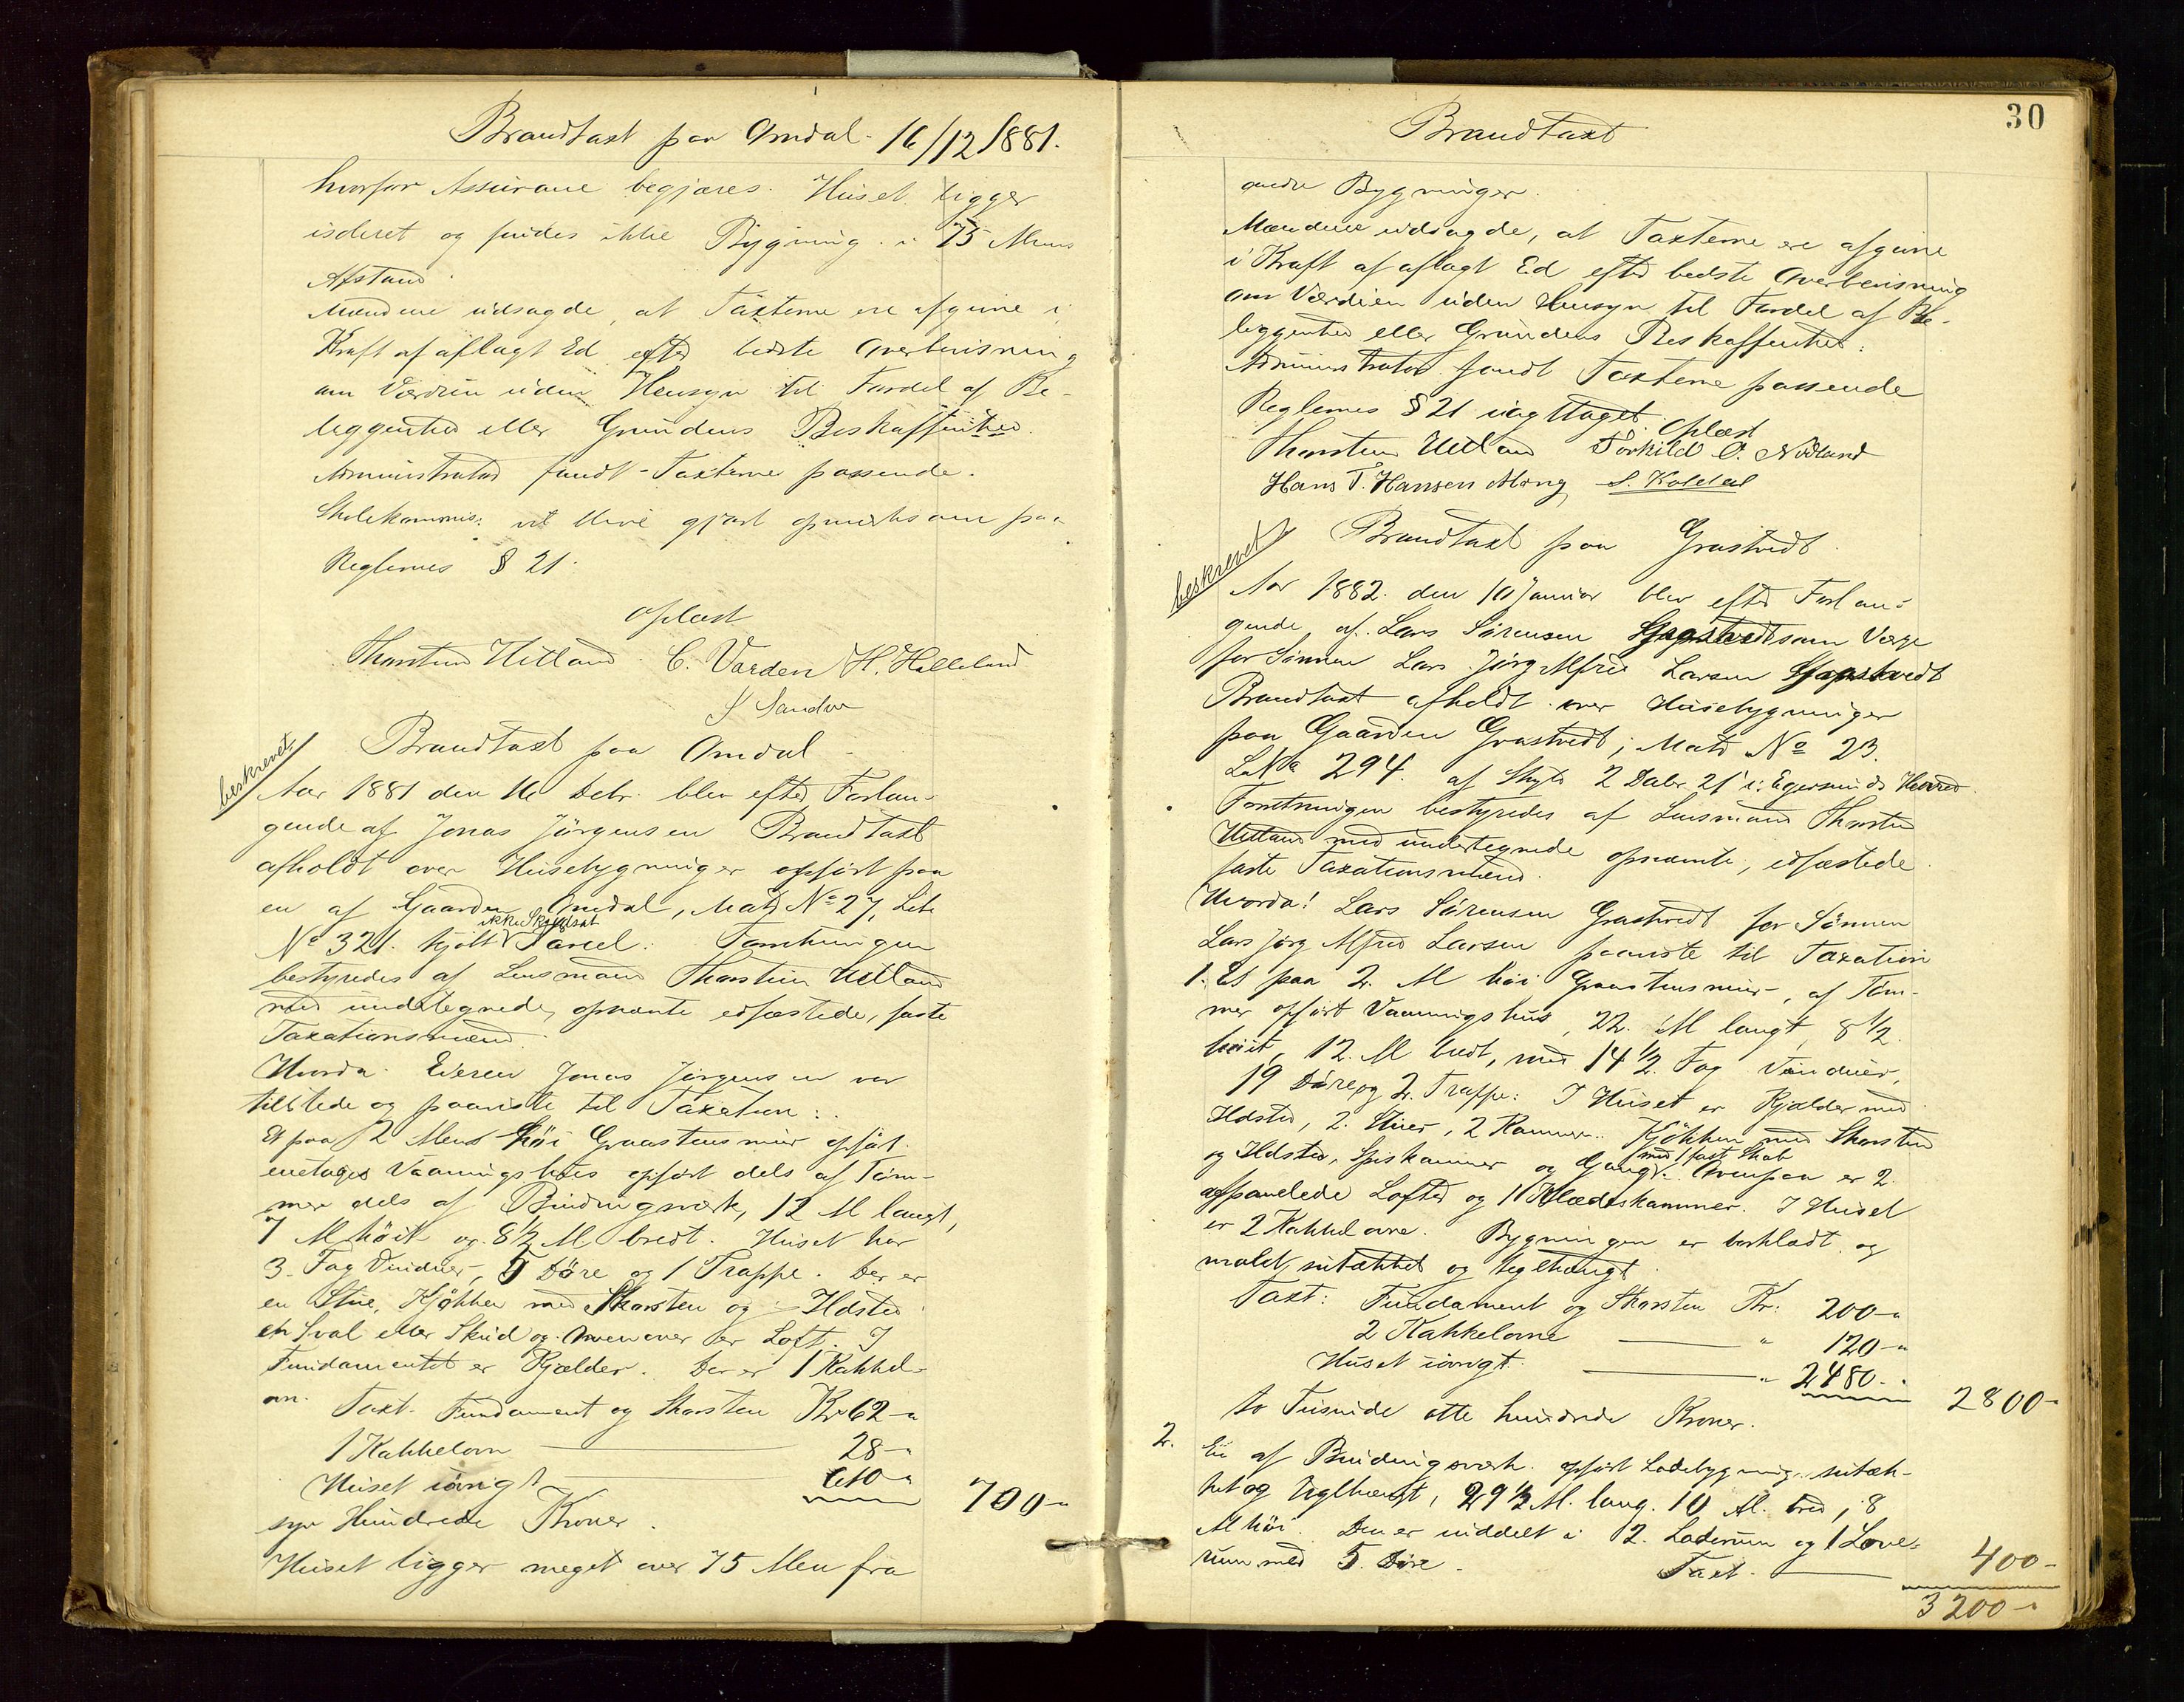 Brandtaxt paa Omdal. 16/12 1881.
hvorfor Assurance begjæres. Huset ligger
isoleret og findes ikke Bygning i 75 Alens
Afstand.
Mændene udsagde, at Taxterne ere afgivne i
Kraft af aflagt Ed efter bedste Overbevisning
om Værdien uden Hensyn til Fordel af Be-
liggenhed eller Grundens Beskaffenhed.
Administrator fandt Taxterne passende.
Skolekommis: vil blive gjort opmerksom paa
Reglernes § 21.
Oplæst
Thorsten Uetland C. Varden H. Helleland
S Sandve
beskrevet
Brandtaxt paa Omdal
Aar 1881 den 16 Debr. blev efter Forlan-
gende af Jonas Jörgensen Brandtaxt
afholdt over Husebygninger opfört paa
en af Gaarden Omdal, Matr No 27, Löbe
ikke Skyldsat
No 321. kjöbt Parcel. Forretningen
bestyredes af Lensmand Thorsten Uetland
med undertegnede, opnævnte edfæstede, faste
Taxationsmænd.
Hvorda. Eieren Jonas Jörgensen var
tilstede og paaviste til Taxation:
Et paa 2 Alens höi Graastensmur opfört
enetages Vaaningshus opfört dels af Töm-
mer dels af Bindingsværk, 12 Al langt,
7 Al höit og 8½ Al bredt. Huset har
3 Fag Vinduer, 5 Döre og 1 Trappe. Der er
en Stue, Kjökken med Skorsten og Ildsted
en Sval eller Skud og ovenover er Loft. I
Fundamentet er Kjelder. Der er 1 Kakkel-
ovn. Taxt. Fundament og Skorsten Kr 62-
1 Kakkelovn 28-
Huset iövrigt 610-
syv Hundrede Kroner. 700-
Huset ligger meget over 75 Alen fra
30
Brandtaxt
andre Bygninger.
Mændene udsagde, at Taxterne ere afgivne
i Kraft af aflagt Ed efter bedste Overbevisning
om Værdien uden Hensyn til Fordel af Be-
liggenhed eller Grundens Beskaffenhed.
Administrator fandt Taxterne passende
Reglernes § 21 iagttaget. Oplæst
Thorsten Uetland Torkild O. Nödland
Hans T. Hansen Mong S. Koldal
beskrevet
Brandtaxt paa Grastvedt
Aar 1882 den 10 Januar blev efter Forlan-
gende af Lars Sörensen Grastvedt som Værge
for Sönnen Lars Jörg Alfred Larsen Grastvedt
Brandtaxt afholdt over Husebygninger
paa Gaarden Grastvedt, Matr No 23.
LNo 294. af Skyld 2 Daler 21 i Egersunds Herred.
Forretningen bestyredes af Lensmand Thorsten
Uetland med undertegnede opnævnte, edfæstede
faste Taxationsmænd.
Hvorda! Lars Sörensen Grastvedt for Sönnen
Lars Jörg Alfred Larsen paaviste til Taxation
1. Et paa 2 Al höi Graastensmur, af Töm-
mer opfört Vaaningshus, 22 Al langt, 8½
höit, 12 Al bredt, med 14½ Fag Vinduer,
19 Döre og 2 Trapper. I Huset er Kjælder med
Ildsted, 2 Stuer, 2 Kamre. Kjökken med Skorsten
med 1 fast Skab
og Ildsted, Spiskammer og Gange. Ovenpaa er 2
afpanelede Lofter og 1 Klædeskammer. I Huset
er 2 Kakkelovne. Bygningen er bordklædt og
malet, sutækket og teglhængt.
Taxt: Fundament og Skorsten Kr: 200-
2 Kakkelovne " 120-
Huset iövrigt " 2480-
to Tusinde otte hundrede Kroner. 2800-
2. En af Bindingsværk opfört Ladebygning, sutæk-
ket og teglhængt, 29½ Al. lang. 10 Al. bred, 8
Al höi. Den er inddelt i 2 Laderum og 1 Love-
rum med 5 Döre. Taxt 400-
3200-